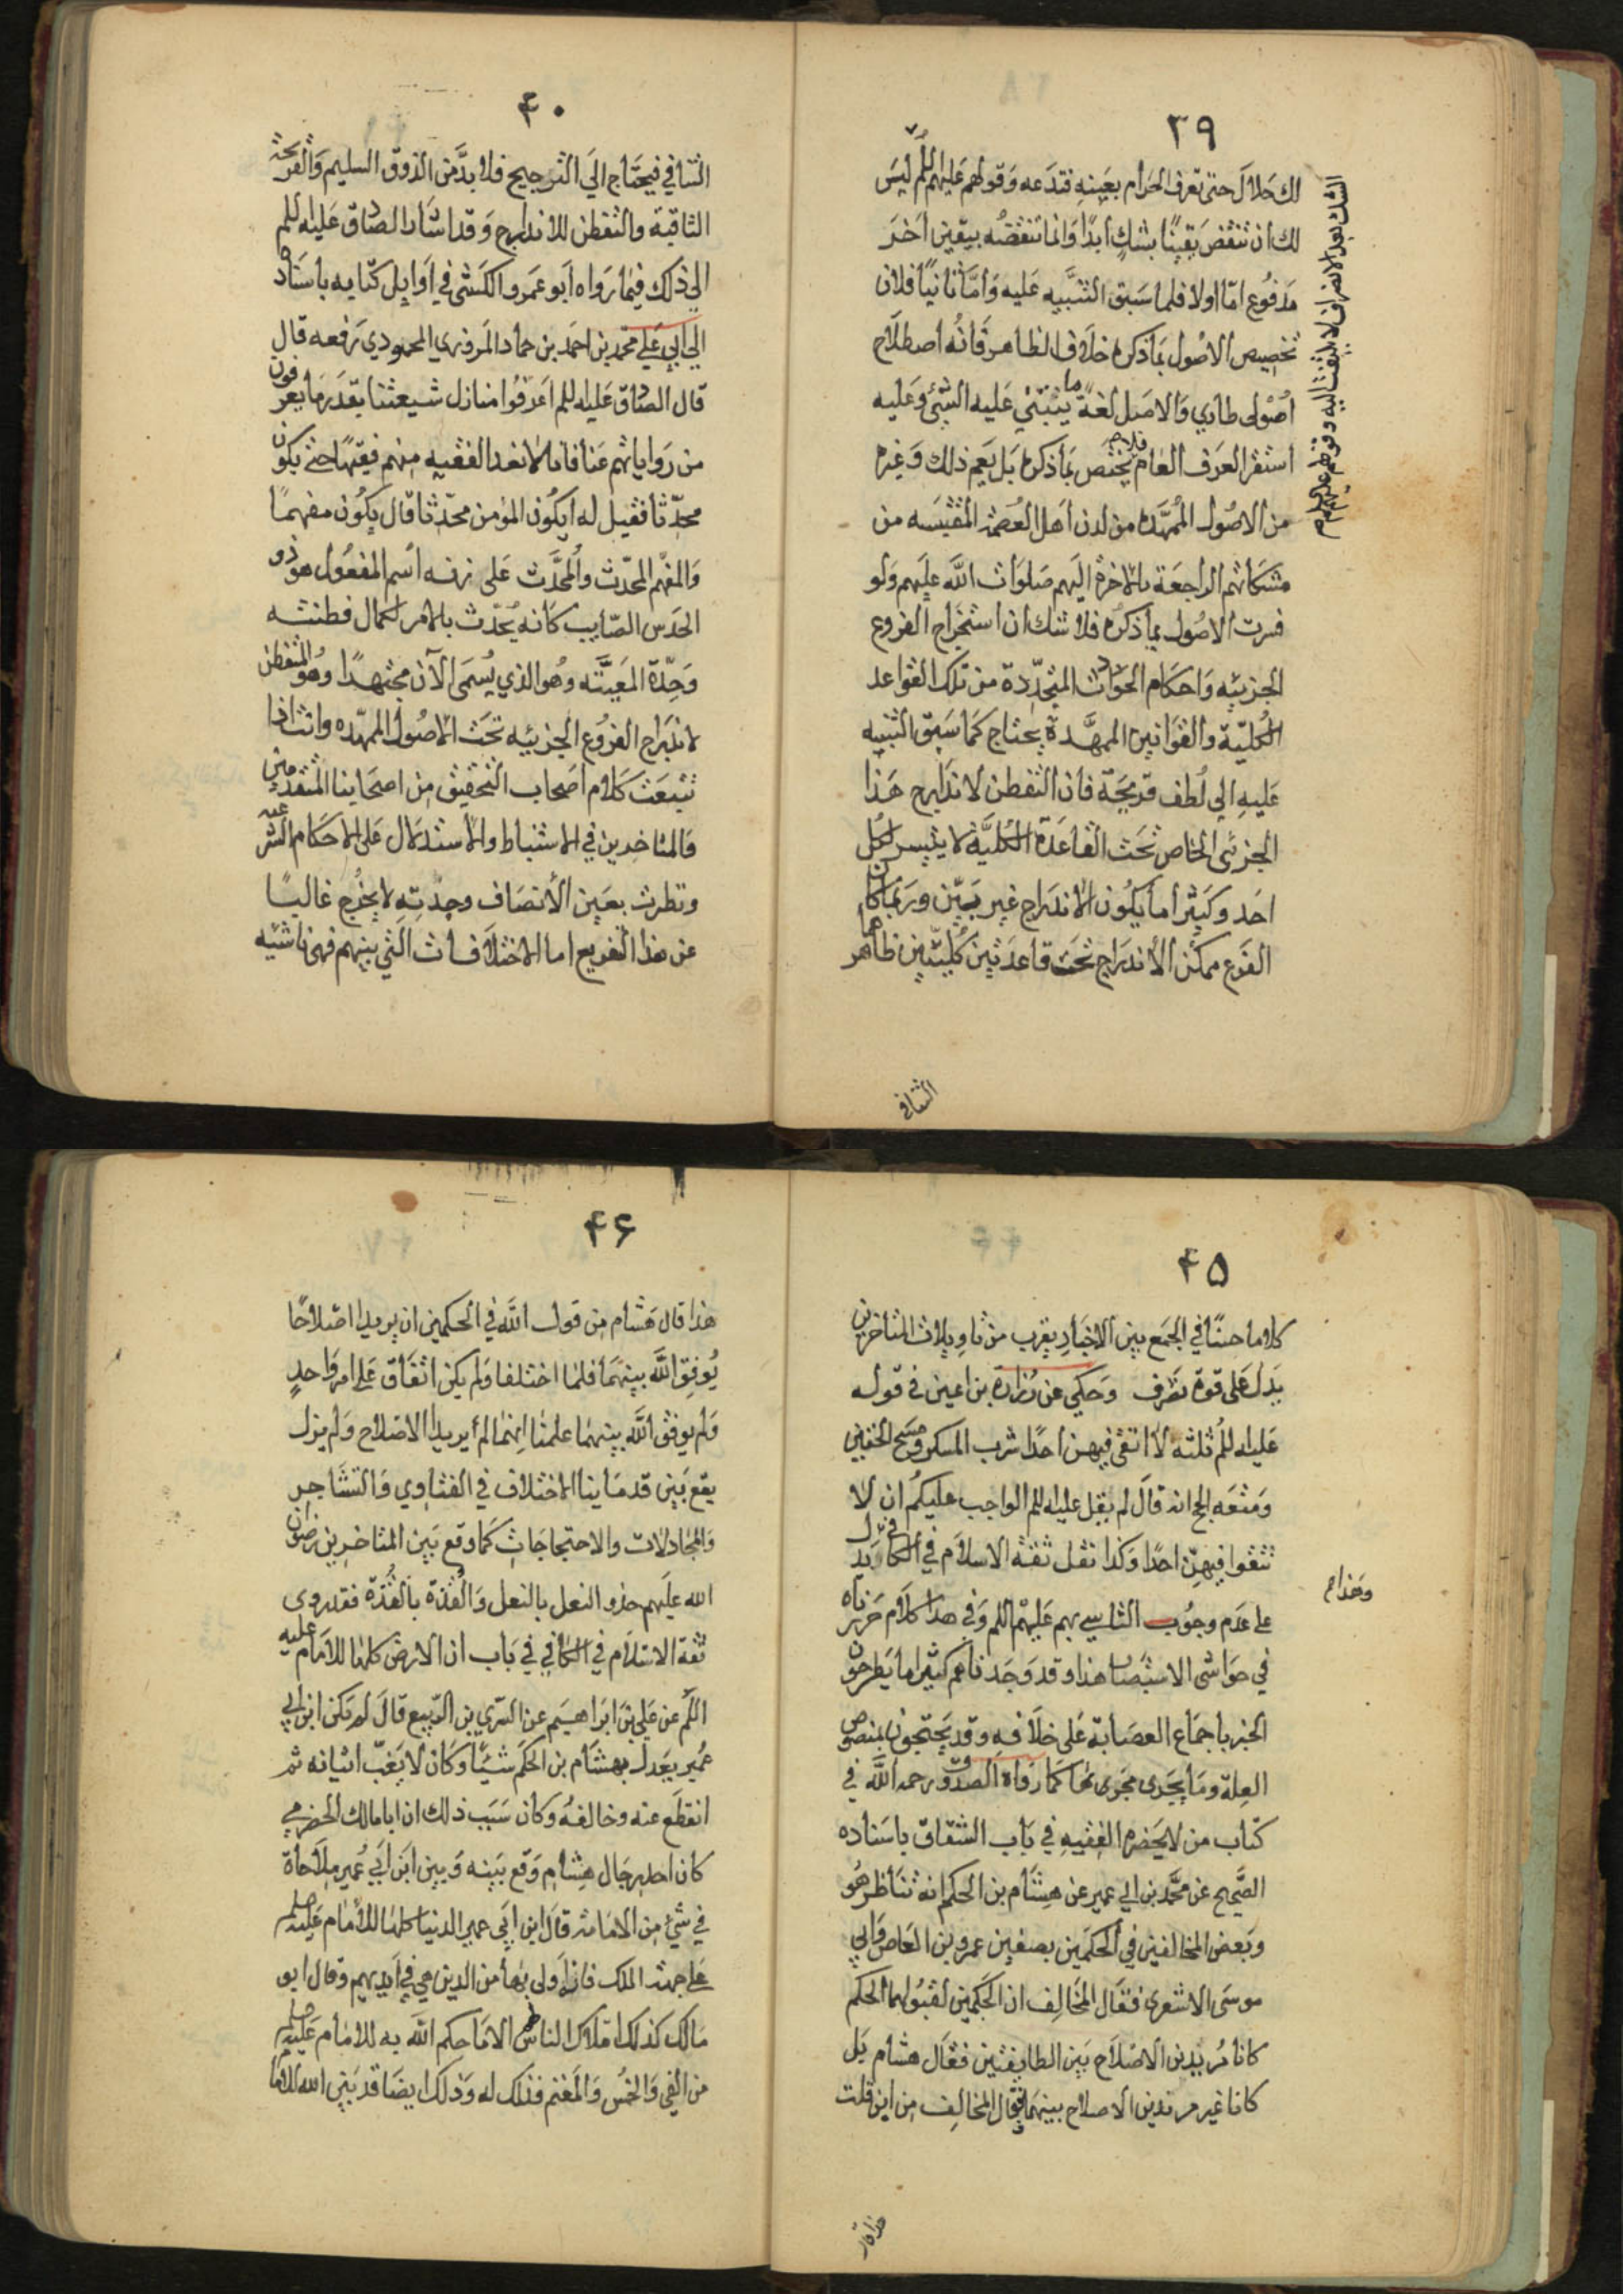 ٣٩
لك حلال حتى تعرف الحرام بعينه فتدعه وقولهم عليهم السلم ليس
لك ان تنقض يقينًا بشكٍ ابدًا وانما تنقضه بيقين اخر
الشك بعد الانصراف لا يلتفت اليه وقولهم عليهم السلم
مدفوع امّا اولا فلما سبق التنبيه عليه وامّا ثانيًا فلان
تخصيص الاصول بما ذكره خلاف الظاهر فانه اصطلاح
اصولى طاري والاصل لغةً ما يبتني عليه الشئ وعليه
استقر العرف العام فلا يختص بما ذكره بل يعم ذلك وغيره
من الاصول الممهّده من لدن اهل العصمة المقتبسه من
مشكاتهم الراجعة بالاخرة اليهم صلوات الله عليهم ولو
فسرت الاصول بما ذكره فلا شك ان استخراج الفروع
الجزئيه واحكام الحوادث المتجدّدة من تلك القواعد
الكليّة والقوانين الممهَّدة يحتاج كما سبق التنبيه
عليه الى لطف قريحة فان التفطن لاندراج هذا
الجزئى الخاص تحت القاعدة الكليَّة لا يتيسر لكل
احد وكثيرًا ما يكون الاندراج غير بيّن وربما كان
الفرع ممكن الاندراج تحت قاعدتين كليتين ظاهرهما
التنافي
٤٠
التنافي فيحتاج الى الترجيح فلا بدَّ من الذوق السليم والقريحة
الثاقبة والتفطن للاندراج وقد اشار الصادق عليه السلم
الى ذلك فيما رواه ابو عمرو الكشى في اوايل كتابه باسناده
الى ابي علي محمد بن احمد بن حماد المروزي المحمودي رفعه قال
قال الصادق عليه السلم اعرفوا منازل شيعتنا بقدر ما يعرفون
من رواياتهم عنا فانا لا نعد الفقيه منهم فقيهًا حتى يكون
محدّثا فقيل له أيكون المؤمن محدّثا قال يكون مفهمًا
والمفهّم المحدّث والمحدَّث على زنه اسم المفعول هو ذو
الحدس الصّايب كانه يحدّث بالامر لكمال فطنته
وحِدّة وهو الذي يُسمى الآن مجتهدًا وهو المتفطن
لاندراج الفروع الجزئيه تحت الاصول الممهّده وانت اذا
تتبعت كلام اصحاب التحقيق من اصحابنا المتقدمين
والمتاخرين في الاستنباط والاستدلال على الاحكام الشرعيه
ونظرت بعين الانصاف وجدته لا يخرج غالبًا
عن هذا التفريع اما الاختلافات التي بينهم فهى ناشئيه
٤٥
كلاما حسنًا في الجمع بين الاخبار يقرب من تاويلات المتاخرين
يدل على قوة تصرف وحكي عن زرارة بن اعين في قوله
عليه السلم ثلثه لا اتقي فيهن احدًا شرب المسكر ومسح الخفين
ومتعه الحج انه قال لم يقل عليه السلم الواجب عليكم ان لا
تتقوا فيهنّ احدًا وكذا نقل ثقة الاسلام في الكافي وهذا ح يدل
على عدم وجوب التاسي بهم عليهم السلم وفي هذا كلام حررناه
في حواشى الاستبصار هذا وقد وجدناهم كثيرا ما يطرحون
الخبر باجماع العصابة على خلافه وقد يحتجون بمنصوص
العلة وما يجرى مجرىها كما رواه الصدوق رحمه الله في
كتاب من لا يحضره الفقيه في باب الشقاق باسناده
الصَّحيح عن محمد بن ابي عمير عن هشام بن الحكم انه تناظر هو
وبعض المخالفين في الحكمين بصفين عمرو بن العاص وابي
موسى الاشعرى فقال المخالف ان الحكمين لقبولهما الحكم
كانا مُريدين الاصلاح بين الطايفتين فقال هشام بل
كانا غير مريدين الاصلاح بينهما فقال المخالف من اين قلت
هذا قال
٤٦
هذا قال هشام من قول الله في الحكمين ان يريدا اصلاحًا
يُوفق الله بينهما فلما اختلفا ولم يكن اتفاق على امر واحدٍ
ولم يوفق الله بينهما علمنا انهما لم يريدا الاصلاح ولم يزل
يقع بين قدماينا الاختلاف في الفتاوي والتشاجر
والمجادلات والاحتجاجات كما وقع بين المتاخرين رضوان
الله عليهم حذو النعل بالنعل والقُذة بالقُذّة فقد روى
ثقة الاسلام في الكافي في باب ان الارض كلها للامام عليه
السلم عن علي بن ابراهيم عن السّري بن الربيع قال لم يكن ابن ابي
عُمير يعدل بهشام بن الحكم شيئا وكان لا يغبّ اتيانه ثم
انقطع عنه وخالفه وكان سبب ذلك ان ابا مالك الحضرمي
كان احد رجال هشام وقع بينه وبين ابن ابي عُمير ملاحاة
في شئ من الامامة قال ابن ابي عمير الدنيا كلها للامام عليه السلم
على جهة الملك فانه اولى بها من الذين هي في ايديهم وقال ابو
مالك كذلك املاك الناس لهم الا ما حكم الله به للامام عليه السلم
من الفي والخمس والمغنم فذلك له وذلك ايضا قد بيّن الله للامام